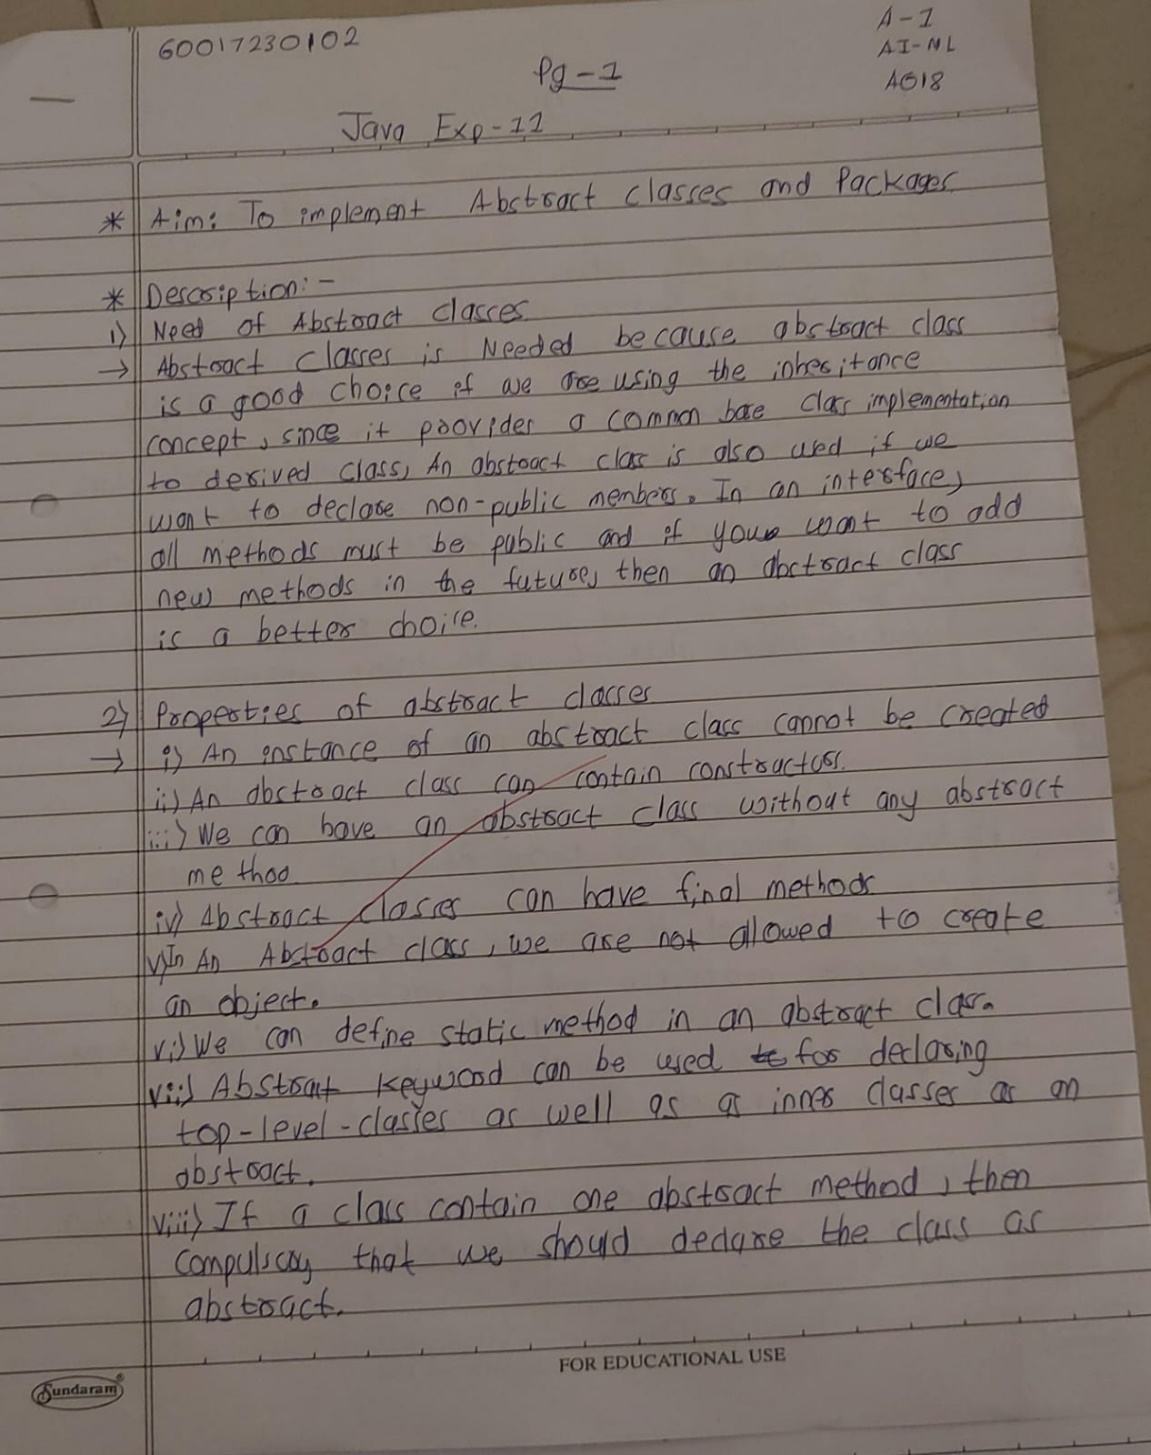 60017230102
A-1
AI-ML
A018
Pg-1
Java Exp-11
* Aim: To implement Abstract classes and Packages
* Description:-
1) Need of Abstract classes
→ Abstract classes is Needed because abstract class
is a good choice if we are using the inheritance
concept, since it provides a common base class implementation
to derived class, An abstract class is also used if we
want to declare non-public members. In an interface,
all methods must be public and if you want to add
new methods in the future, then an abstract class
is a better choice.
2) Properties of abstract classes
→ i) An instance of an abstract class cannot be created
ii) An abstract class can contain constructors.
iii) We can have an abstract class without any abstract
method
iv) Abstract classes can have final methods
v) In An Abstract class, we are not allowed to create
an object.
vi) We can define static method in an abstract class.
vii) Abstrat keyword can be used for declaring
top-level-classes as well as a inner classes as an
abstract.
viii) If a class contain one abstract method, then
compulsory that we should declare the class as
abstract.
FOR EDUCATIONAL USE
Sundaram®